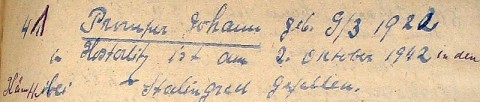 41 Johann geb. 9/3 1922
in ist am 2. Oktober 1942 in den
bei Stalingrad gefallen.